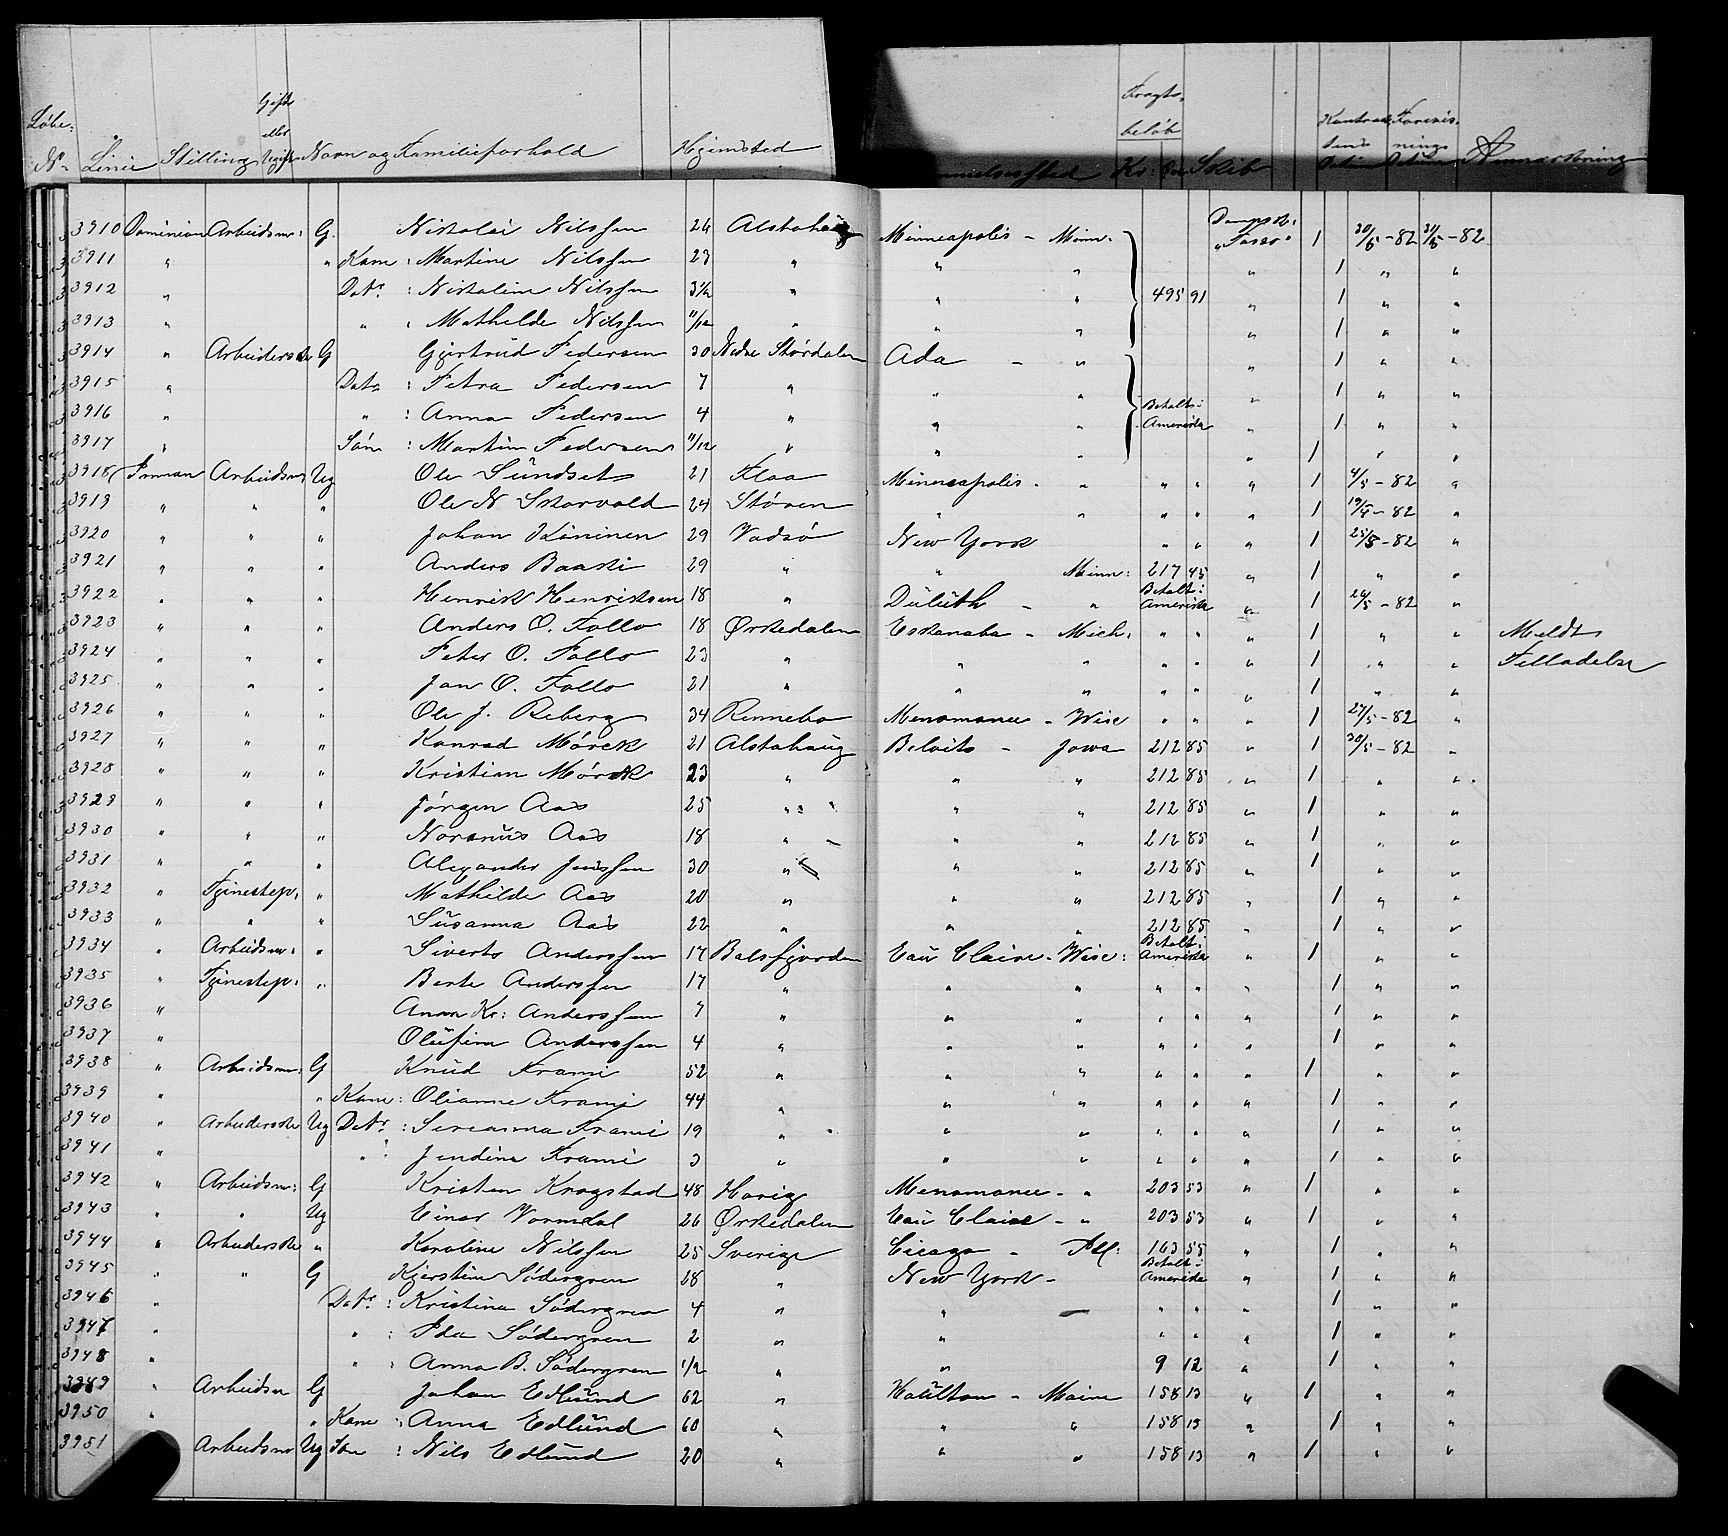 Løbe: N. Linie Stilling Gift eller Ugift Navn og Familieforhold Hjemsted Fragtbeløb Kr: Øre Skib Kontraktens Datum Anmærkning
3910 Dominion Arbeidsm: G. Nikolai Nilssen 26 Alstahaug Minneapolis - Minn. Dampsk: "Tasso" 1 30/5-82 31/5-82
3911 " " Kone : Martine Nilssen 23 " " " " 1 " "
3912 " Datr : Nikoline Nilssen 3½ " " " 495 91 " 1 " "
3913 " " : Mathilde Nilssen 11/12 " " " " 1 " "
3914 " Arbeiderske G Gjertrud Pedersen 30 Nedre Størdalen Ada - " " 1 " "
3915 " Datr : Petra Pedersen 7 " " " " 1 " "
3916 " " : Anna Pedersen 4 " " " Betalt i Amerika " 1 " "
3917 " Søn : Martin Pedersen 11/12 " " " " 1 " "
3918 Inman Arbeidsm Ug Ole Sundset 21 Flaa Minneapolis - " " " " 1 4/5-82 "
3919 " " " Ole N Skorvold 24 Støren " " " " " 1 19/4-82 "
3920 " " " Johan Kininen 29 Vadsø New York " " " 1 25/5-82 "
3921 " " " Anders Baaski 29 " " Minn: 217 45 " 1 " "
3922 " " " Henrik Henriksen 18 " Duluth - " Betalt i Amerika " 1 26/5-82 "
3923 " " " Anders O. Follo 18 Ørkedalen Eskanaba - Mich: " " " 1 " " Meldt
3924 " " " Peter O. Follo 23 " " " " " " 1 " " Tilladelse
3925 " " " Jon O. Follo 21 " " " " " " 1 " "
3926 " " " Ole J. Reberg 34 Rennebo Menomonee - Wisc " " " 1 27/5-82 "
3927 " " " Konrad Mørck 21 Alstahaug Beloits - Jowa 212 85 " 1 30/5-82 "
3928 " " " Kristian Mørck 23 " " " 212 85 " 1 " "
3929 " " " Jørgen Aas 25 " " " 212 85 " 1 " "
3930 " " " Noranus Aas 18 " " " 212 85 " 1 " "
3931 " " " Alexander Jenssen 30 " " " 212 85 " 1 " "
3932 " Tjenestep: " Mathilde Aas 20 " " " 212 85 " 1 " "
3933 " " " Susanna Aas 22 " " " 212 85 " 1 " "
3934 " Arbeidsm: " Siverts Anderssen 17 Balsfjorden Eau Claire - Wisc: Betalt i Amerika " 1 " "
3935 " Tjenestep: " Berte Anderssen 17 " " " " " " 1 " "
3936 " Anna Kr: Anderssen 7 " " " " " " 1 " "
3937 " Olufine Anderssen 4 " " " " " " 1 " "
3938 " Arbeidsm: G Knud Krami 52 " " " " " " 1 " "
3939 " " Kone : Olianne Krami 44 " " " " " " 1 " "
3940 " Arbeiderske Ug Datr : Sereanna Krami 19 " " " " " " 1 " "
3941 " " : Jendine Krami 3 " " " " " " 1 " "
3942 " Arbeidsm: G Kristen Krogstad 48 Horig Menomonee - " 203 53 " 1 " "
3943 " " Ug Einar Vormdal 26 Ørkedalen Eau Claire - " 203 53 " 1 " "
3944 " Arbeiderske " Karoline Nilssen 25 Sverige Cicago - Ill: 163 55 " 1 " "
3945 " " G Kjerstine Södergren 28 " New York - Betalt i Amerika " 1 " "
3946 " Datr : Kristina Södergren 4 " " — " " " 1 " "
3947 " " : Ida Södergren 2 " " " " " 1 " "
3948 " " : Anna B. Södergren 1/2 " " 9 12 " 1 " "
3949 " Arbeidsm G Johan Edlund 62 " Houlton - Maine 158 13 " 1 " "
3950 " " Kone : Anna Edlund 60 " " " 158 13 " 1 " "
3951 Arbeidsm Ug Søn : Nils Edlund 20 " " " 158 13 " 1 " "